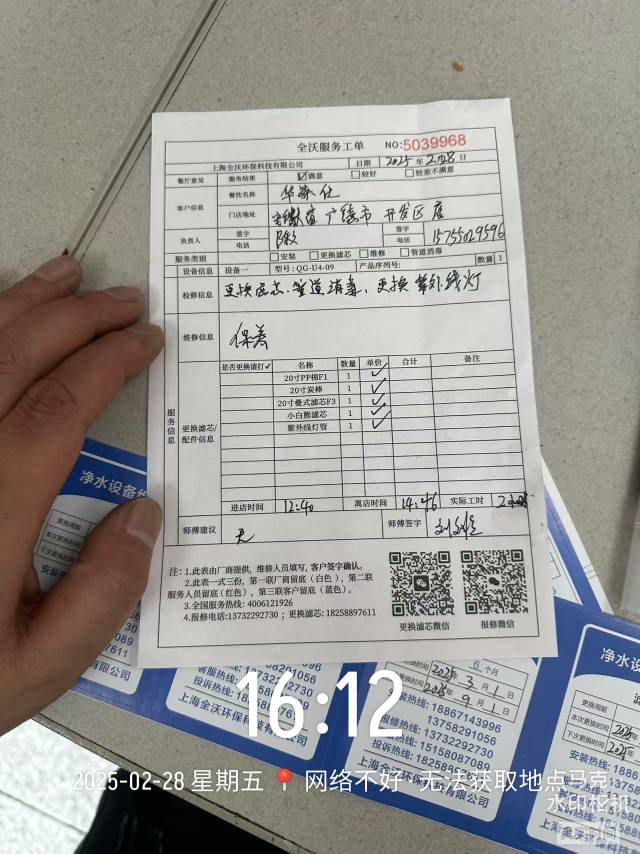 全沃服务工单 NO:5039968
上海全沃环保科技有限公司 日期 2025年2月28日
餐厅意见 服务结果 ☑满意 □较好 □较差不满意
客户信息 餐饮名称 华莱仕
门店地址 广德市 开发区店
负责人 签字 电话 签字 电话 15755029596
服务类别 □安装 □更换滤芯 □维修 □管道消毒
设备信息 设备一 型号:QG-U4-09 产品序列号: 数量 1
检修信息 更换滤芯、管道消毒、更换紫外线灯
维修信息 保养
服务信息 更换滤芯/配件信息
是否更换请打✓ 名称 数量 单价 合计 备注
20寸PP棉F1 1 ✓
20寸炭棒 1 ✓
20寸叠式滤芯F3 1 ✓
小白熊滤芯 1 ✓
紫外线灯管 1 ✓
进店时间 12:40 离店时间 14:46 实际工时
师傅建议 无 师傅签字
注:1.此表由厂商提供,维修人员填写,客户签字确认。
2.此表一式三份,第一联厂商留底(白色),第二联
服务人员留底(红色),第三联客户留底(蓝色)。
3.全国服务热线:4006121926
4.报修电话:13732292730;更换滤芯:18258897611
更换滤芯微信 报修微信
净水设备
更换周期
本次更换时间
下次更换时间
安装
上海全沃环保科技有限公司
投诉热线:
6个月
更换时间 2025年3月1日
更换时间 2025年9月1日
安装热线:18867143996
报修热线:13758291056
客服热线:13732292730
投诉热线:15158087089
净水设
更换周期
本次更换时间 2025
下次更换时间 2025
安装热线:
报修热线:
客服热线:
投诉热线:
上海全沃环保科技
16:12
2025-02-28 星期五 网络不好 无法获取地点马克
水印相机